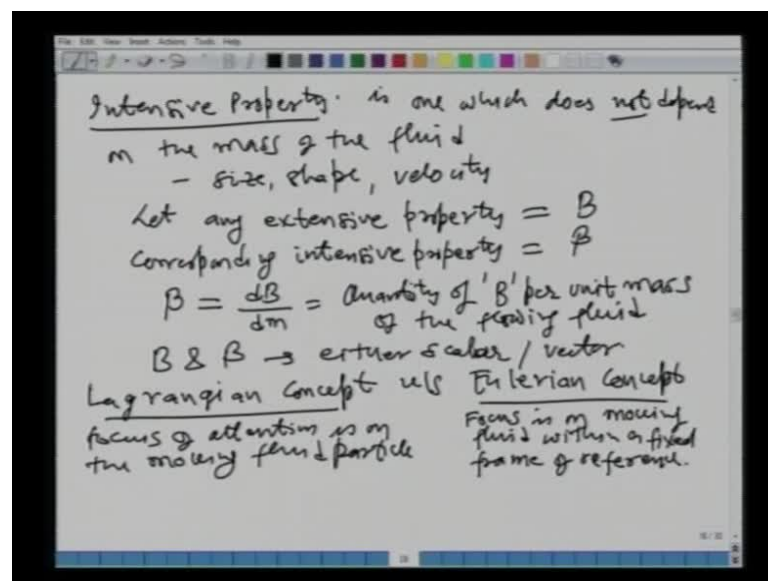 File Edit View Insert Actions Tools Help
Intensive Property. is one which does not depend
on the mass of the fluid
- size, shape, velocity
Let any extensive property = B
Corresponding intensive property = β
β = dB/dm = Quantity of 'B' per unit mass
of the flowing fluid
B & β → either scalar / vector.
Lagrangian Concept v/s Eulerian Concept
focus of attention is on
the moving fluid particle
Focus is on moving
fluid within a fixed
frame of reference.